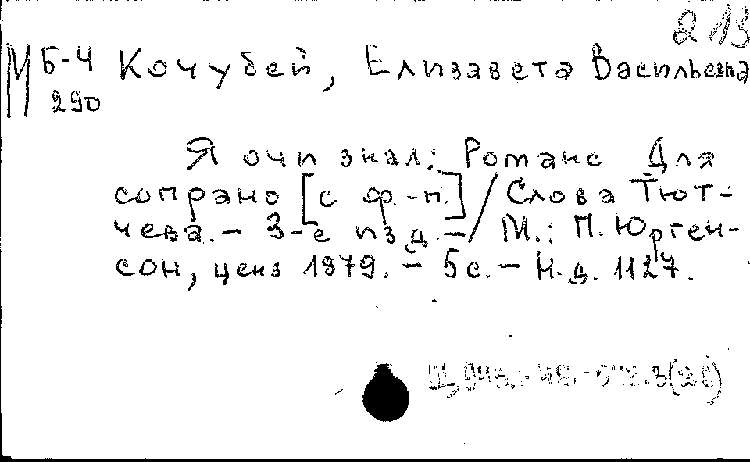 213
М Б-4 Кочубей, Елизавета Васильевна
290
Я очи знал: Романс Для
сопрано [с ф.-п.] / Слова Тют-
чева. - 3-е изд. - М.: П. Юрген-
сон, ценз 1879. - 5 с. - Н.д. 1127.